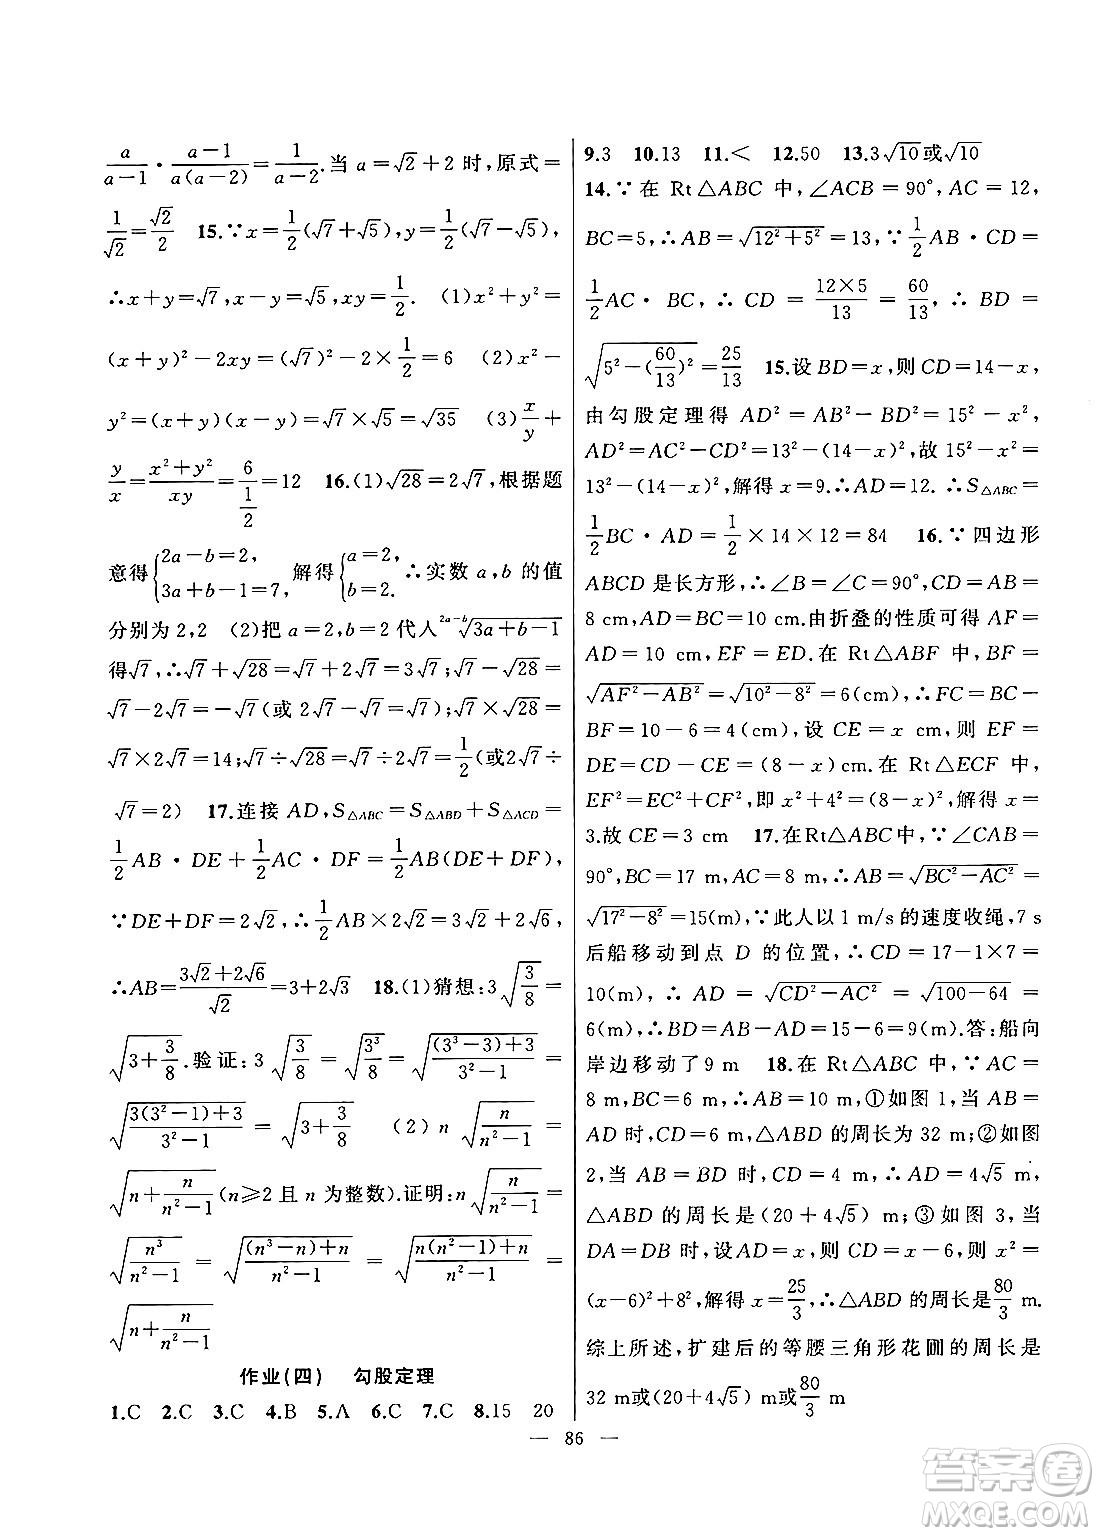 a/(a-1)·(a-1)/(a(a-2))=1/(a-2).当 a=√2+2 时,原式=
1/√2=√2/2 15.∵x=1/2(√7+√5),y=1/2(√7-√5),
∴x+y=√7,x-y=√5,xy=1/2. (1)x²+y²=
(x+y)²-2xy=(√7)²-2×1/2=6 (2)x²-
y²=(x+y)(x-y)=√7×√5=√35 (3)x/y+
y/x=(x²+y²)/xy=6/(1/2)=12 16.(1)√28=2√7,根据题
意得{2a-b=2, 3a+b-1=7, 解得{a=2, b=2. ∴实数 a,b 的值
分别为 2,2 (2)把 a=2,b=2 代人 ²ᵃ⁻ᵇ√(3a+b-1)
得√7,∴√7+√28=√7+2√7=3√7;√7-√28=
√7-2√7=-√7(或 2√7-√7=√7);√7×√28=
√7×2√7=14;√7÷√28=√7÷2√7=1/2(或2√7÷
√7=2) 17.连接 AD,S△ABC=S△ABD+S△ACD=
1/2AB·DE+1/2AC·DF=1/2AB(DE+DF),
∵DE+DF=2√2,∴1/2AB×2√2=3√2+2√6,
∴AB=(3√2+2√6)/√2=3+2√3 18.(1)猜想:3√(3/8)=
√(3+3/8).验证:3√(3/8)=√(3³/8)=√(((3³-3)+3)/(3²-1))=
√((3(3²-1)+3)/(3²-1))=√(3+3/8) (2)n√(n/(n²-1))=
√(n+n/(n²-1))(n≥2 且 n 为整数).证明:n√(n/(n²-1))=
√(n³/(n²-1))=√(((n³-n)+n)/(n²-1))=√((n(n²-1)+n)/(n²-1))=
√(n+n/(n²-1))
作业(四) 勾股定理
1.C 2.C 3.C 4.B 5.A 6.C 7.C 8.15 20
9.3 10.13 11.< 12.50 13.3√10或√10
14.∵在 Rt△ABC 中,∠ACB=90°,AC=12,
BC=5,∴AB=√(12²+5²)=13,∵1/2AB·CD=
1/2AC·BC,∴CD=(12×5)/13=60/13,∴BD=
√(5²-(60/13)²)=25/13 15.设 BD=x,则 CD=14-x,
由勾股定理得 AD²=AB²-BD²=15²-x²,
AD²=AC²-CD²=13²-(14-x)²,故 15²-x²=
13²-(14-x)²,解得 x=9.∴AD=12.∴S△ABC=
1/2BC·AD=1/2×14×12=84 16.∵四边形
ABCD 是长方形,∴∠B=∠C=90°,CD=AB=
8 cm,AD=BC=10 cm.由折叠的性质可得 AF=
AD=10 cm,EF=ED.在 Rt△ABF 中,BF=
√(AF²-AB²)=√(10²-8²)=6(cm),∴FC=BC-
BF=10-6=4(cm),设 CE=x cm,则 EF=
DE=CD-CE=(8-x)cm.在 Rt△ECF 中,
EF²=EC²+CF²,即 x²+4²=(8-x)²,解得 x=
3.故 CE=3 cm 17.在Rt△ABC中,∵∠CAB=
90°,BC=17 m,AC=8 m,∴AB=√(BC²-AC²)=
√(17²-8²)=15(m),∵此人以 1 m/s 的速度收绳,7 s
后船移动到点 D 的位置,∴CD=17-1×7=
10(m),∴AD=√(CD²-AC²)=√(100-64)=
6(m),∴BD=AB-AD=15-6=9(m).答:船向
岸边移动了 9 m 18.在 Rt△ABC 中,∵AC=
8 m,BC=6 m,∴AB=10 m,①如图 1,当 AB=
AD 时,CD=6 m,△ABD 的周长为 32 m;②如图
2,当 AB=BD 时,CD=4 m,∴AD=4√5 m,
△ABD 的周长是(20+4√5) m;③如图 3,当
DA=DB 时,设AD=x,则 CD=x-6,则 x²=
(x-6)²+8²,解得 x=25/3,∴△ABD 的周长是80/3 m.
综上所述,扩建后的等腰三角形花圃的周长是
32 m或(20+4√5) m或80/3 m
— 86 —
答案卷
MXQE.COM